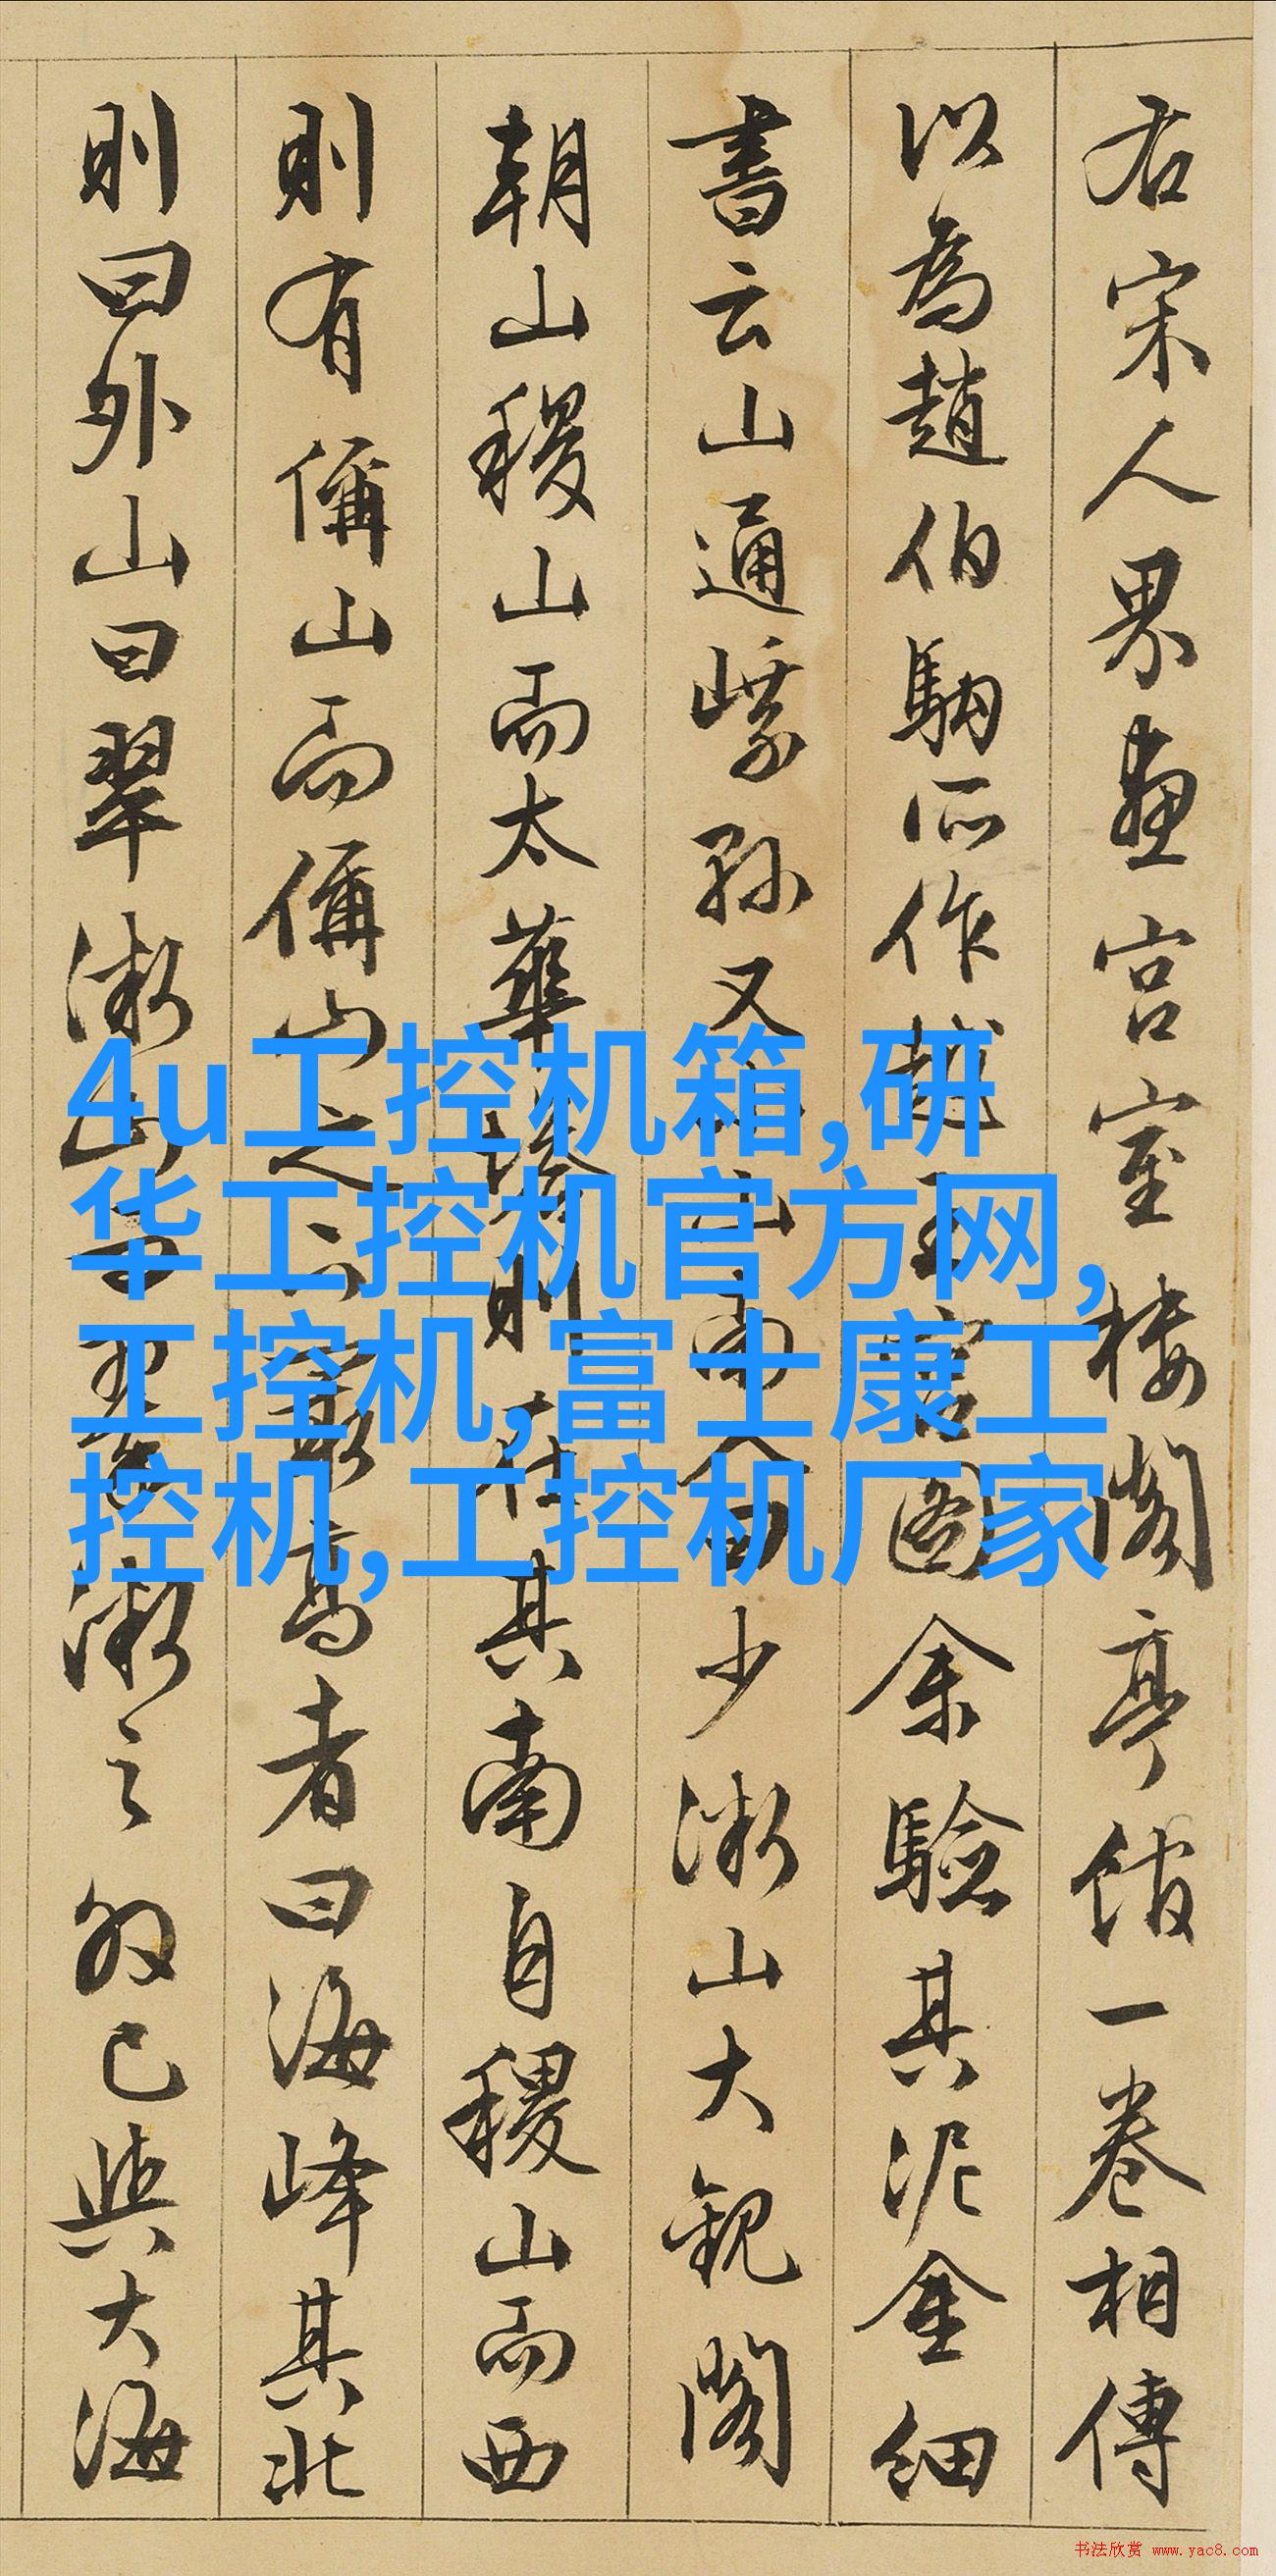 右宋人界畫宮室樓閣亭館一卷相傳
以為趙伯駒所作越王宮圖余驗其泥金細
書云山通
又
少微山大觀閣
朝山稷山而太華
則在其南自稷山而西
則有偁山而偁山之
最高者曰海峰其北
則曰外山曰翠微山
微之
已與大海
4u工控机箱,研
华工控机官方网,
工控机,富士康工
控机,工控机厂家
书法欣赏 www.yac8.com